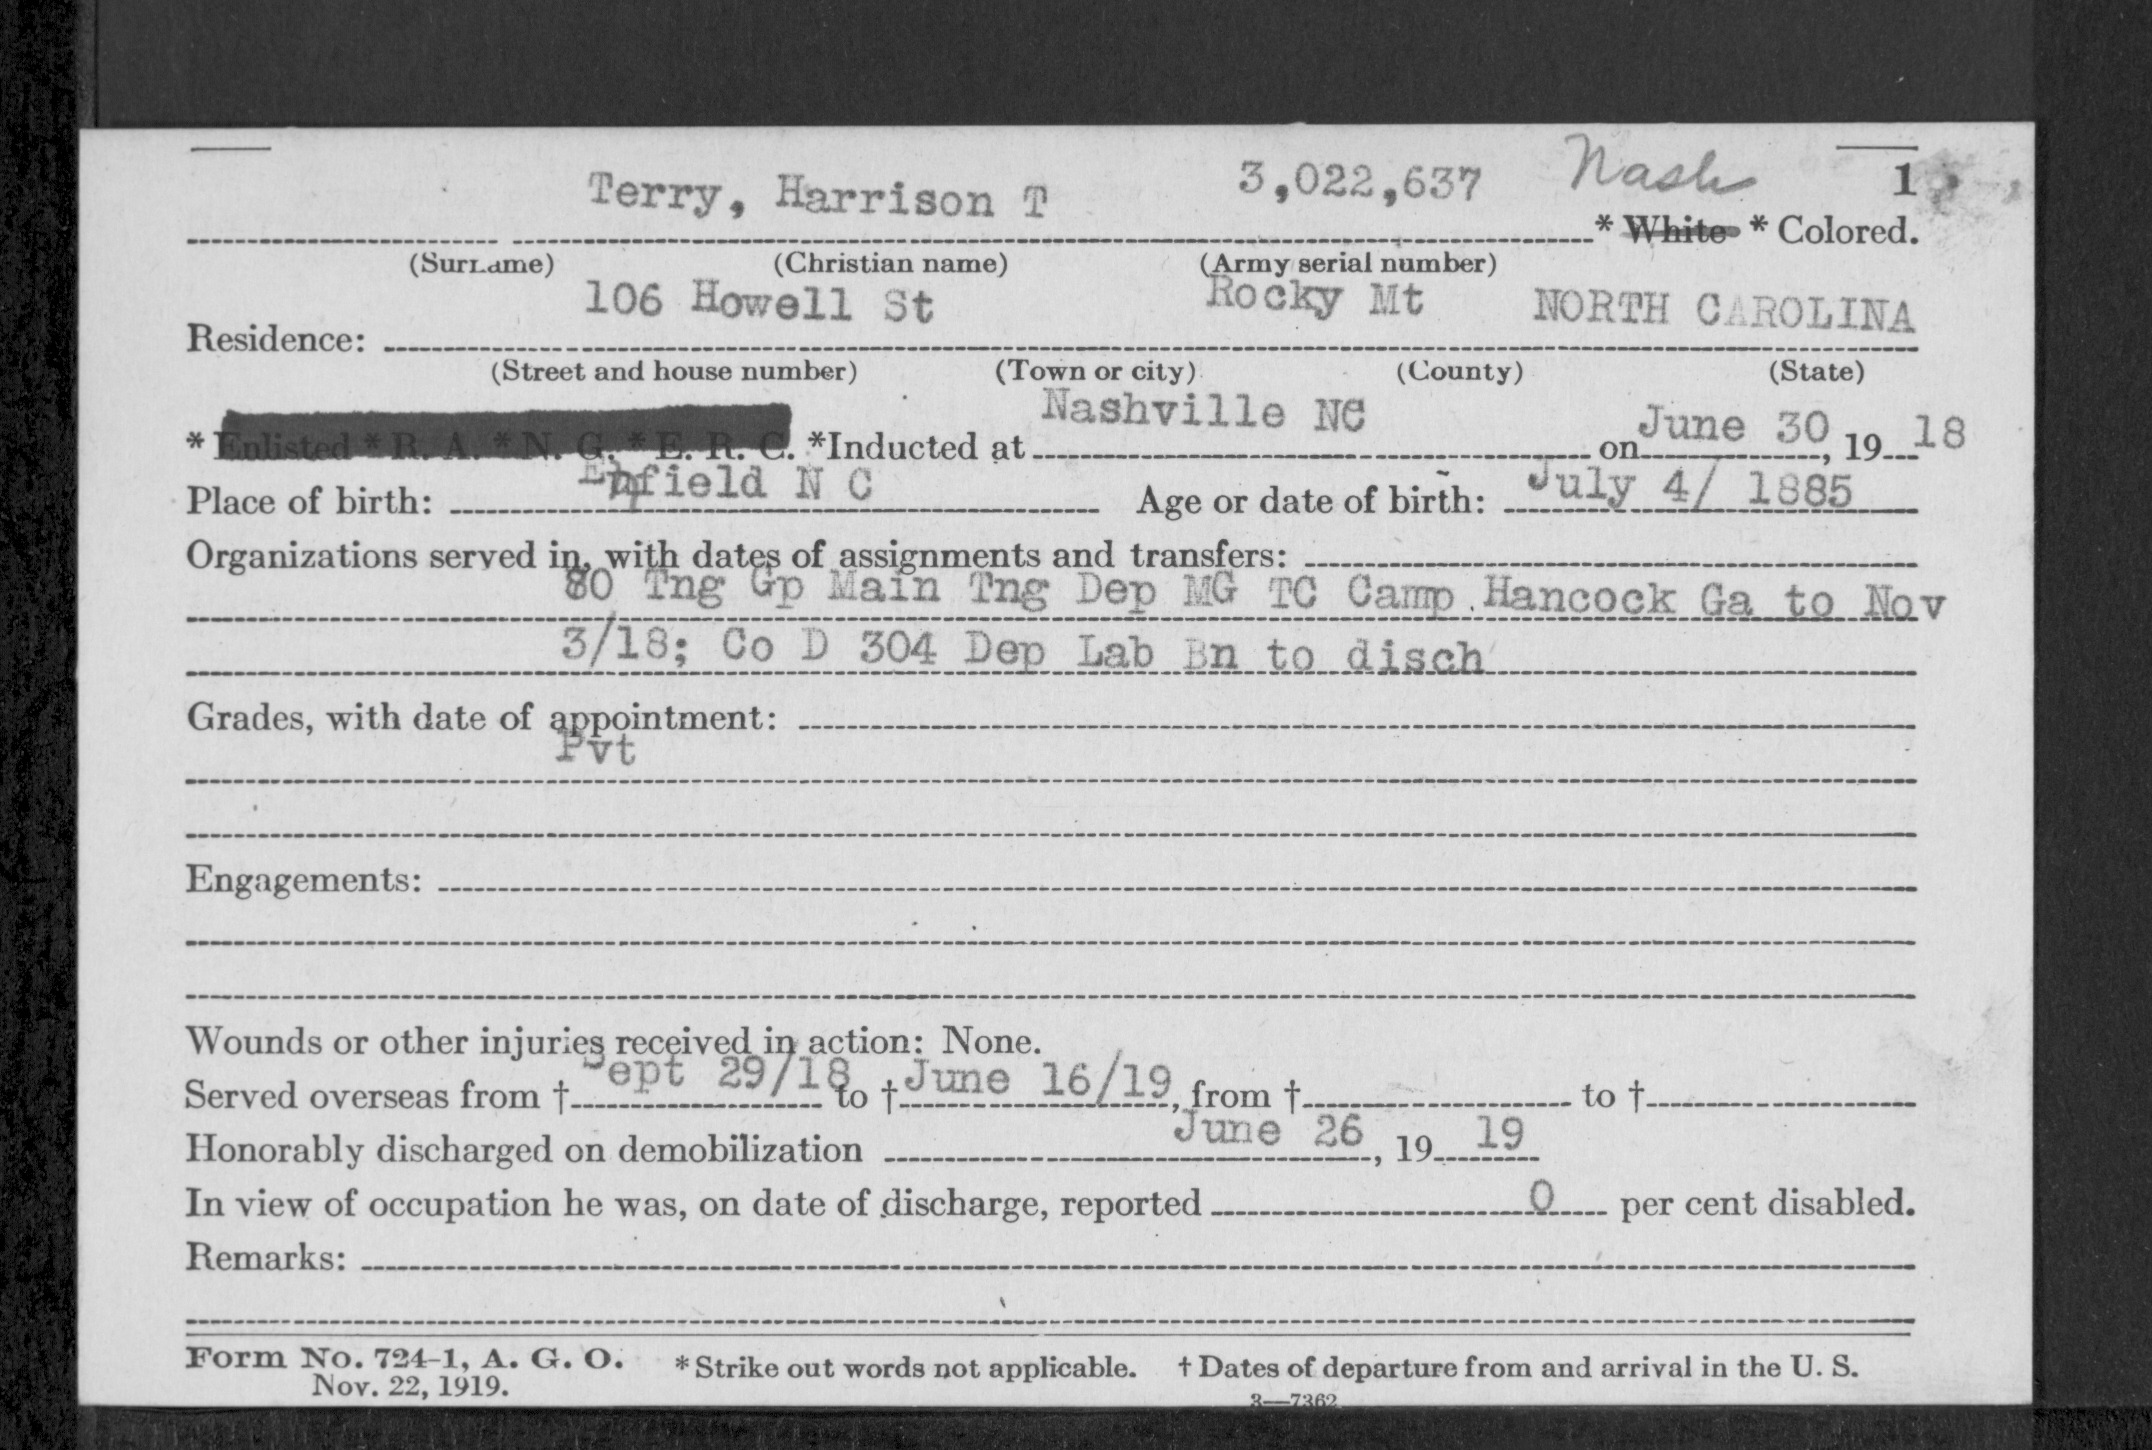 Terry, Harrison T 3,022,637 Nash 1
* White * Colored.
(Surname) (Christian name) (Army serial number)
106 Howell St Rocky Mt NORTH CAROLINA
Residence:
(Street and house number) (Town or city) (County) (State)
* Enlisted * R. A. * N. G. * E. R. C. *Inducted at Nashville NC on June 30, 19 18
Place of birth: Enfield N C Age or date of birth: July 4/ 1885
Organizations served in, with dates of assignments and transfers:
80 Tng Gp Main Tng Dep MG TC Camp Hancock Ga to Nov
3/18; Co D 304 Dep Lab Bn to disch
Grades, with date of appointment:
Pvt
Engagements:
Wounds or other injuries received in action: None.
Served overseas from † Sept 29/18 to † June 16/19, from † to †
Honorably discharged on demobilization June 26, 19 19
In view of occupation he was, on date of discharge, reported 0 per cent disabled.
Remarks:
Form No. 724-1, A. G. O. * Strike out words not applicable. † Dates of departure from and arrival in the U. S.
Nov. 22, 1919.
3—7362